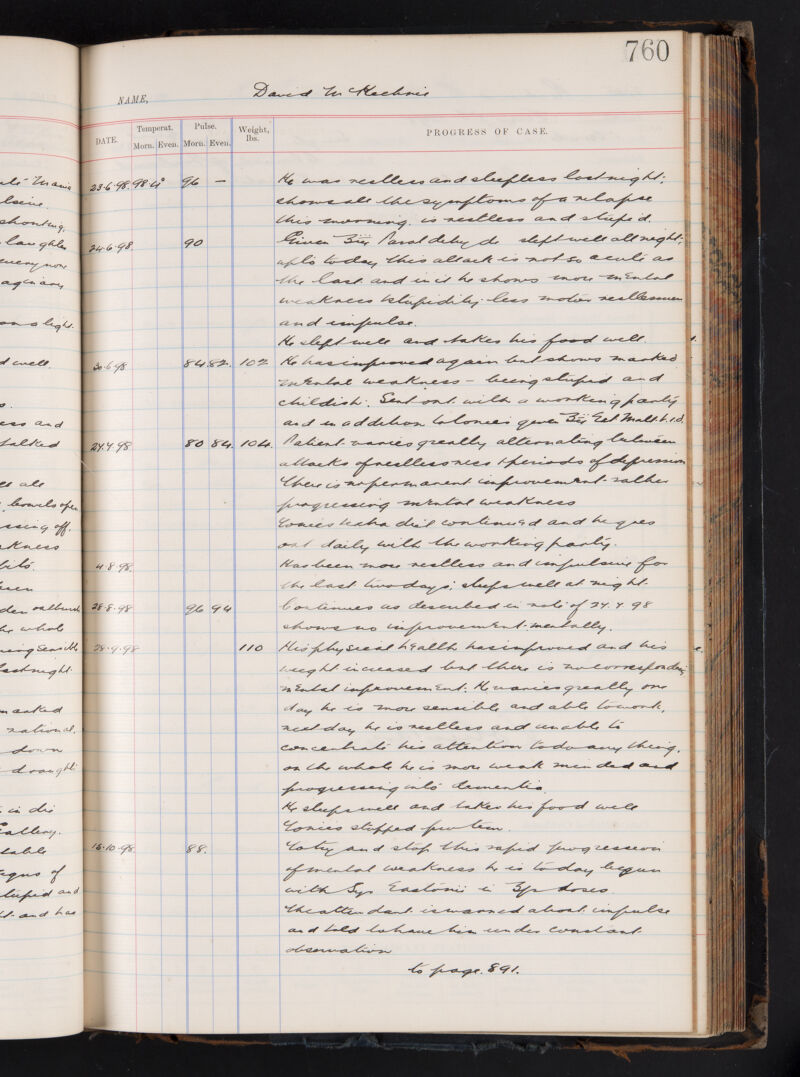 760
NAME, David McKechnie
DATE. Temperat. Pulse. Weight, lbs. PROGRESS OF CASE.
Morn. Even. Morn. Even.
23·6·98. 98·4° 96 — He was restless and sleepless last night;
shows all the symptoms of a relapse
this morning. is restless and stupid.
24·6·98. 90 Given Paraldehyde slept well all night;
up to today this attack is not so acute as
the last and in it he shows more mental
weakness & stupidity less motor restlessness
and impulse.
He slept well and takes his food well.
30·6·98 84 82. 102 He has improved again but shows marked
mental weakness – being stupid and
childish. Sent out with a working party
and in addition to tonics given Ext Malt t.i.d.
24.7.98 80 84. 104. Patient varies greatly alternating between
attacks of restlessness & periods of depression
There is no permanent improvement rather
progressing mental weakness
Tonics extra diet continued and he goes
out daily with the working party.
4·8·98. Has been more restless and impulsive for
the last two days; sleeps well at night.
28·8·98 96 94 Continues as described in note of 24.7.98
shows no improvement mentally.
28·9·98 110 His physical health has improved and his
weight increased but there is no corresponding
mental improvement. He varies greatly one
day he is more sensible and able to work,
next day he is restless and unable to
concentrate his attention to do any thing.
on the whole he is more weak minded and
progressing into dementia.
He sleeps well and takes his food well
Tonics stopped pro tem.
16·10·98. 88. To try and stop this rapid progression
of mental weakness he is today begun
with Syr Eastonii in doses.
The attendant is warned about impulse
and told to have him under constant
observation
to page. 891.